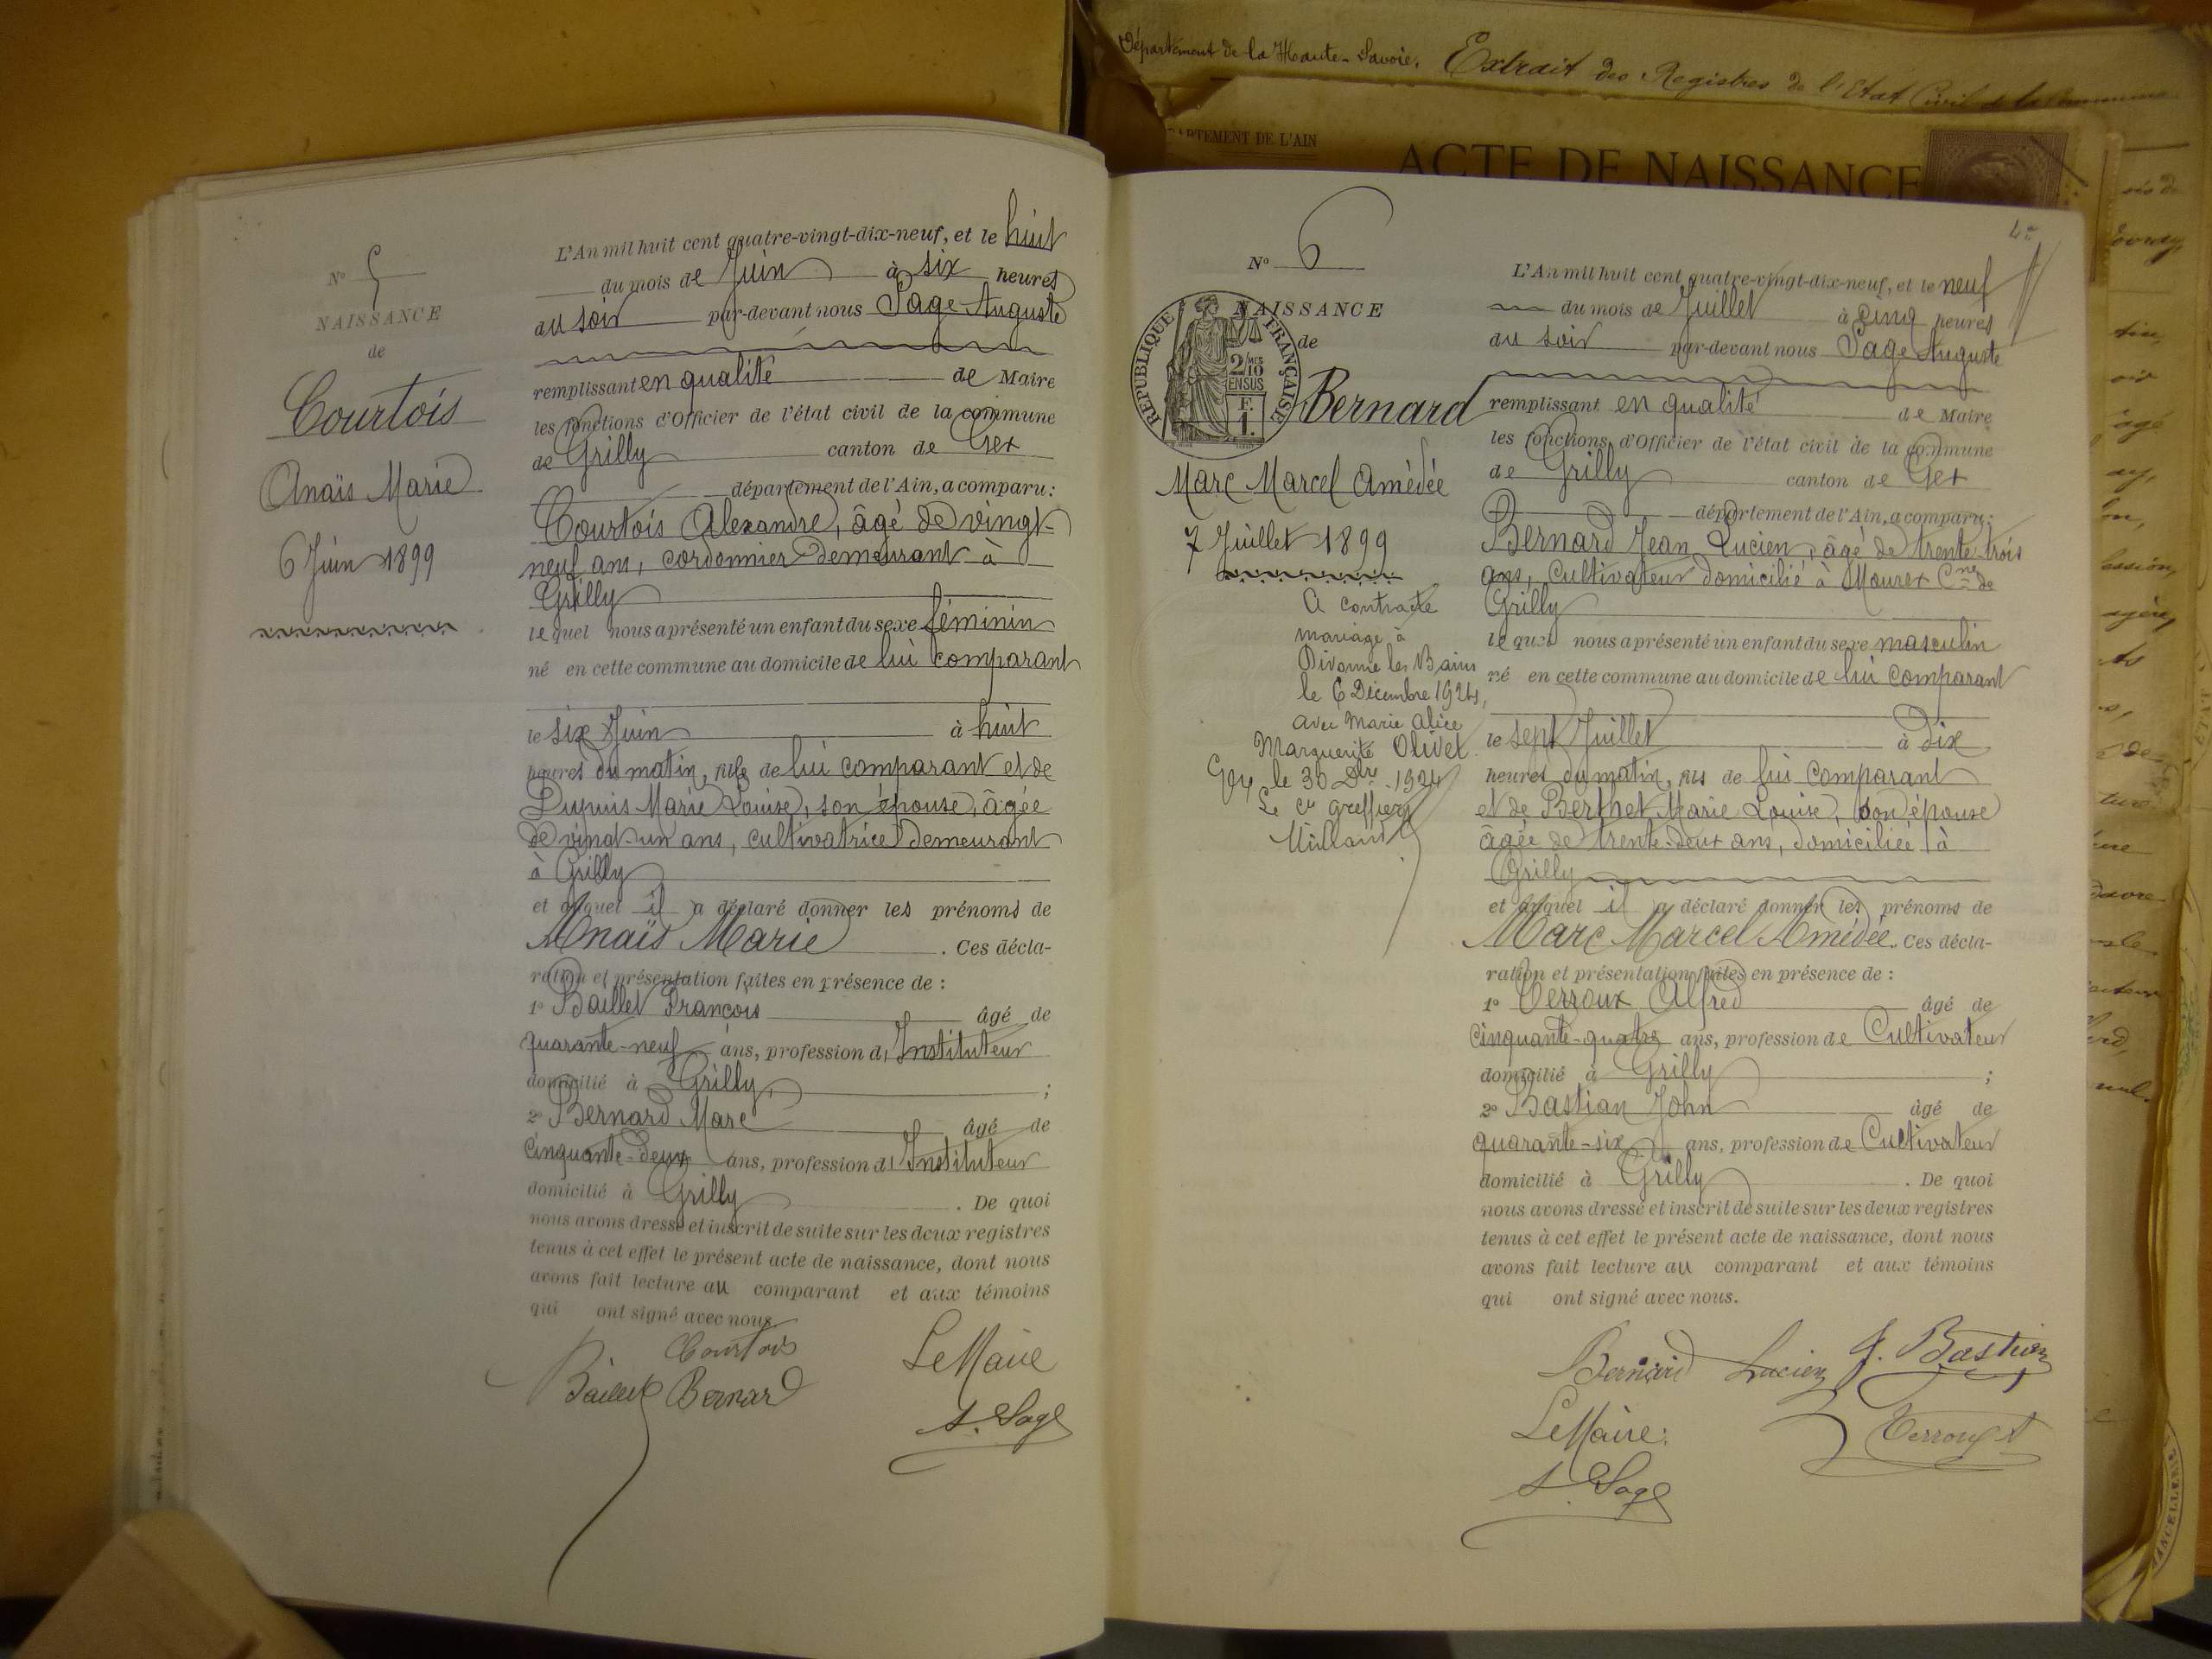 Département de la Haute-Savoie. Extrait des Registres de l'Etat Civil de la Commune
DEPARTEMENT DE L'AIN
ACTE DE NAISSANCE
N° 5
NAISSANCE
de
Courtois
Anaïs Marie
6 Juin 1899
L'An mil huit cent quatre-vingt-dix-neuf, et le huit
du mois de Juin à six heures
du soir par-devant nous Sage Auguste
remplissant en qualité de Maire
les fonctions d'Officier de l'état civil de la commune
de Grilly canton de Gex
département de l'Ain, a comparu:
Courtois Alexandre, âgé de vingt-
neuf ans, cordonnier demeurant à
Grilly
lequel nous a présenté un enfant du sexe féminin
né en cette commune au domicile de lui comparant
le six Juin à huit
heures du matin, fille de lui comparant et de
Dupuis Marie Louise, son épouse, âgée
de vingt-un ans, cultivatrice demeurant
à Grilly
et auquel il a déclaré donner les prénoms de
Anaïs Marie . Ces décla-
ration et présentation faites en présence de :
1° Baillet François âgé de
quarante-neuf ans, profession d' Instituteur
domicilié à Grilly ;
2° Bernard Marc âgé de
cinquante-deux ans, profession d' Instituteur
domicilié à Grilly . De quoi
nous avons dressé et inscrit de suite sur les deux registres
tenus à cet effet le présent acte de naissance, dont nous
avons fait lecture au comparant et aux témoins
qui ont signé avec nous
Courtois
Baillet Bernard
Le Maire
A. Sage
N° 6
NAISSANCE
de
REPUBLIQUE FRANÇAISE
2/10 EN SUS
F. 1.
Bernard
Marc Marcel Amédée
7 Juillet 1899
A contracté
mariage à
Divonne les Bains
le 6 Décembre 1924,
avec Marie Alice
Marguerite Olivet.
Gex le 30 Dbre 1924
Le Cis greffier
L'An mil huit cent quatre-vingt-dix-neuf, et le neuf
du mois de Juillet à cinq heures
du soir par-devant nous Sage Auguste
remplissant en qualité de Maire
les fonctions d'Officier de l'état civil de la commune
de Grilly canton de Gex
département de l'Ain, a comparu:
Bernard Jean Lucien, âgé de trente-trois
ans, cultivateur domicilié à Mourex Cne de
Grilly
lequel nous a présenté un enfant du sexe masculin
né en cette commune au domicile de lui comparant
le sept Juillet à dix
heures du matin, fils de lui comparant
et de Berthet Marie Louise, son épouse
âgée de trente-deux ans, domiciliée à
Grilly
et auquel il a déclaré donner les prénoms de
Marc Marcel Amédée. Ces décla-
ration et présentation faites en présence de :
1° Verroux Alfred âgé de
cinquante-quatre ans, profession de Cultivateur
domicilié à Grilly ;
2° Bastian John âgé de
quarante-six ans, profession de Cultivateur
domicilié à Grilly . De quoi
nous avons dressé et inscrit de suite sur les deux registres
tenus à cet effet le présent acte de naissance, dont nous
avons fait lecture au comparant et aux témoins
qui ont signé avec nous.
Bernard Lucien J. Bastian
Le Maire:
A. Sage